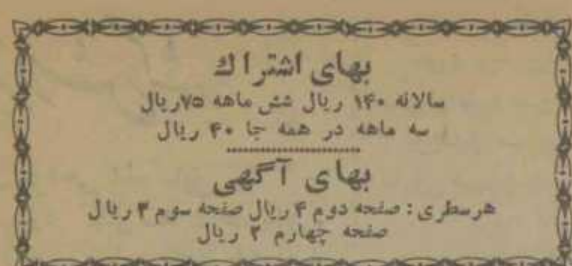 بهای اشتراك
سالانه ۱۴۰ ریال شش ماهه ۷۵ریال
سه ماهه در همه جا ۴۰ ریال
بهای آگهی
هرسطری : صفحه دوم ۴ ریال صفحه سوم ۳ ریال
صفحه چهارم ۲ ریال